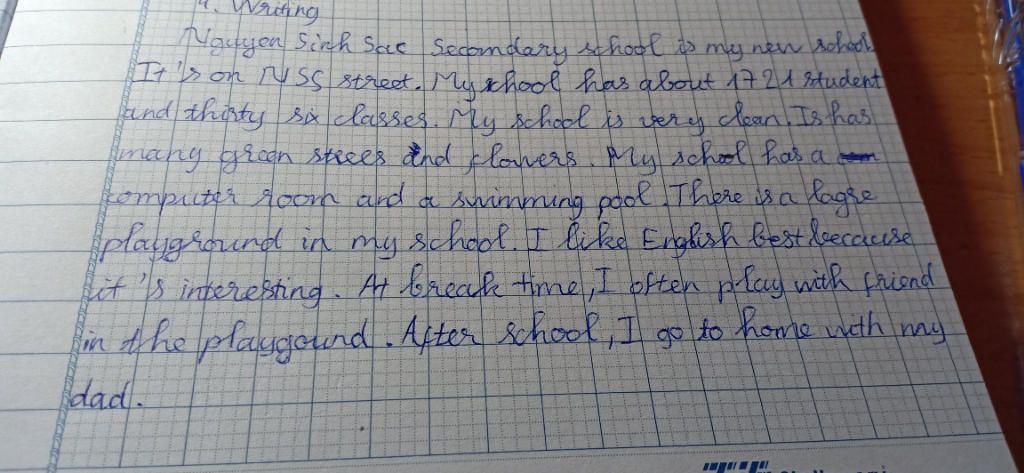 4. Writing
Nguyen Sinh Sac Secomdary school is my new school.
It's on NSS street. My school has about 1721 student
and thirty six classes. My school is very clean. Is has
many green trees and flowers. My school has a
computer room and a swimming pool. There is a lagre
playground in my school. I like English best beecause
it's interesting. At break time, I often play with friend
in the playgound. After school, I go to home with my
dad.